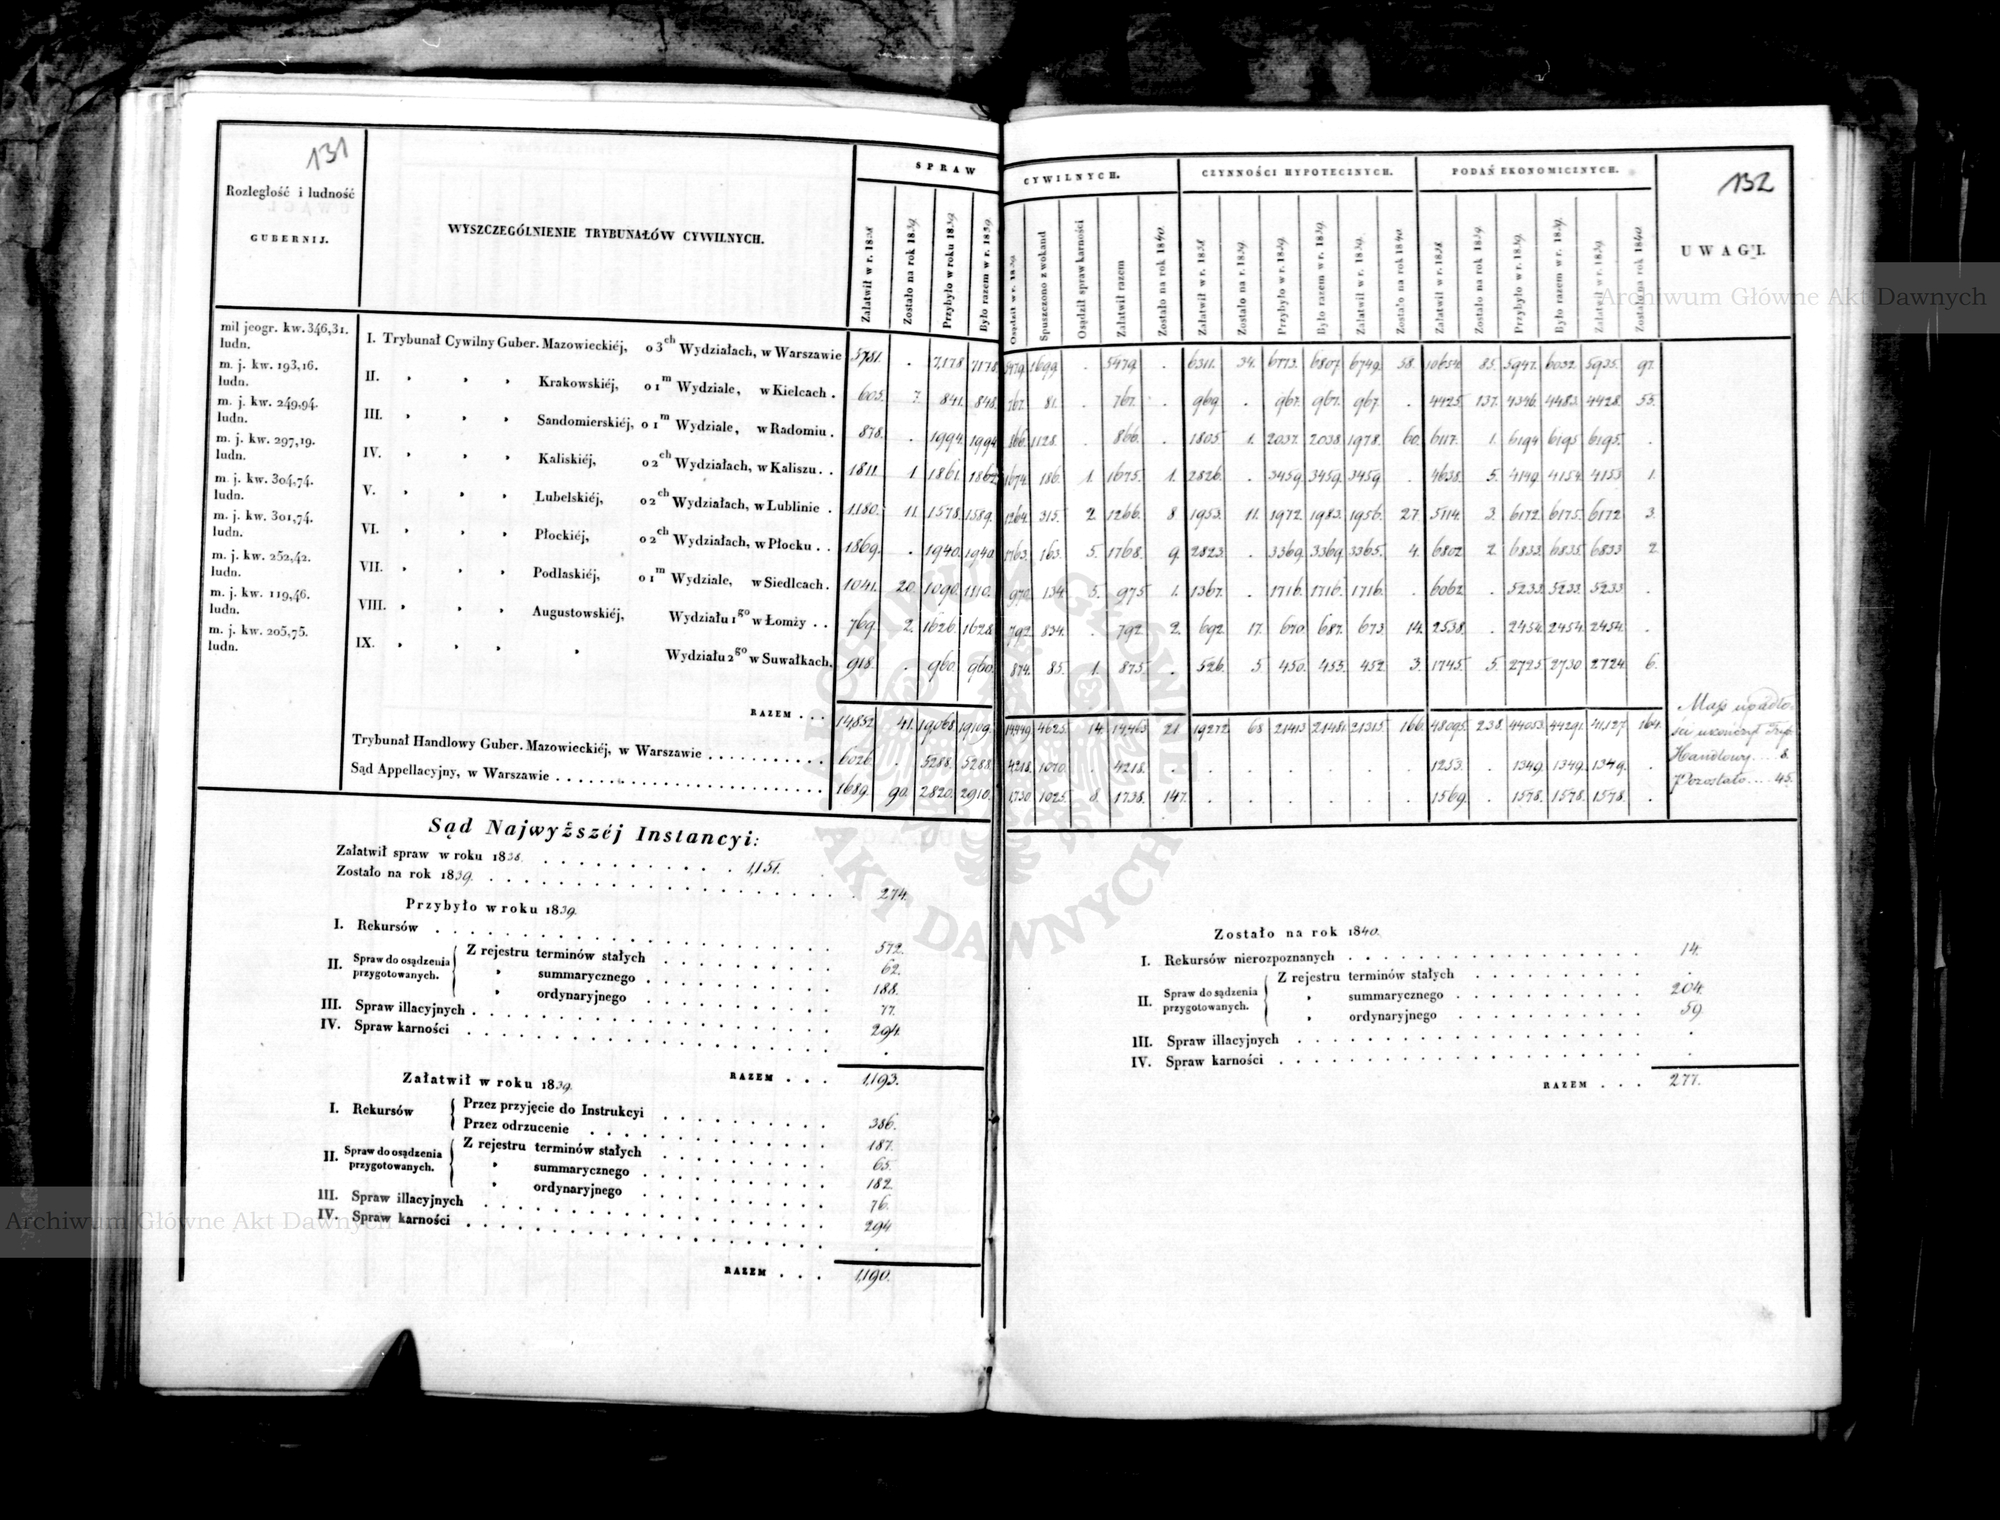 131
Rozległość i ludność
GUBERNIJ.
WYSZCZEGÓLNIENIE TRYBUNAŁÓW CYWILNYCH.
SPRAW CYWILNYCH.
CZYNNOŚCI HYPOTECZNYCH.
PODAŃ EKONOMICZNYCH.
132
UWAGI.
Załatwił w r. 1838
Zostało na rok 1839.
Przybyło w roku 1839.
Było razem w r. 1839.
Osądził w r. 1839.
Spuszczono z wokand
Osądził spraw karności
Załatwił razem
Zostało na rok 1840.
Załatwił w r. 1838.
Zostało na r. 1839.
Przybyło w r. 1839.
Było razem w r. 1839.
Załatwił w r. 1839.
Zostało na rok 1840.
Załatwił w r. 1838.
Zostało na rok 1839.
Przybyło w r. 1839.
Było razem w r. 1839.
Załatwił w r. 1839.
Zostało na rok 1840.
mil jeogr. kw. 346,31. ludn. I. Trybunał Cywilny Guber. Mazowieckiéj, o 3ch Wydziałach, w Warszawie 5781. . 7,178 7178. 5479. 1699. . 5479. . 6311. 34. 6773. 6807. 6749. 58. 10654. 85. 5947. 6032. 5935. 97.
m. j. kw. 193,16. ludn. II. " " " Krakowskiéj, o 1m Wydziale, w Kielcach . 605. 7. 841. 848. 767. 81. . 767. . 969. . 967. 967. 967. . 4425. 137. 4346. 4483. 4428. 55.
m. j. kw. 249,94. ludn. III. " " " Sandomierskiéj, o 1m Wydziale, w Radomiu . 878. . 1994. 1994. 866. 1128. . 866. . 1805. 1. 2037. 2038. 1978. 60. 6117. 1. 6194. 6195. 6195. .
m. j. kw. 297,19. ludn. IV. " " " Kaliskiéj, o 2ch Wydziałach, w Kaliszu . . 1811. 1. 1861. 1862. 1674. 186. 1. 1675. 1. 2826. . 3459. 3459. 3459. . 4638. 5. 4149. 4154. 4153. 1.
m. j. kw. 304,74. ludn. V. " " " Lubelskiéj, o 2ch Wydziałach, w Lublinie . 1180. 11. 1578. 1589. 1264. 315. 2. 1266. 8. 1953. 11. 1972. 1983. 1956. 27. 5114. 3. 6172. 6175. 6172. 3.
m. j. kw. 301,74. ludn. VI. " " " Płockiéj, o 2ch Wydziałach, w Płocku . . 1869. . 1940. 1940. 1763. 163. 5. 1768. 9. 2823. . 3369. 3369. 3365. 4. 6802. 2. 6833. 6835. 6833. 2.
m. j. kw. 252,42. ludn. VII. " " " Podlaskiéj, o 1m Wydziale, w Siedlcach . 1041. 20. 1090. 1110. 970. 134. 5. 975. 1. 1367. . 1716. 1716. 1716. . 6062. . 5233. 5233. 5233. .
m. j. kw. 119,46. ludn. VIII. " " " Augustowskiéj, Wydziału 1go w Łomży . . 769. 2. 1626. 1628. 792. 834. . 792. 2. 692. 17. 670. 687. 673. 14. 2538. . 2454. 2454. 2454. .
m. j. kw. 205,75. ludn. IX. " " " " Wydziału 2go w Suwałkach. 918. . 960. 960. 874. 85. 1. 875. . 526. 5. 450. 455. 452. 3. 1745. 5. 2725. 2730. 2724. 6.
RAZEM . . . 14,852. 41. 19068. 19109. 14449. 4625. 14. 14,463. 21. 19272. 68. 21413. 21481. 21315. 166. 48095. 238. 44053. 44291. 41,127. 164.
Trybunał Handlowy Guber. Mazowieckiéj, w Warszawie . . . 6026. . 5288. 5288. 4218. 1070. . 4218. . . . . . . . 1253. . 1349. 1349. 1349. .
Sąd Appellacyjny, w Warszawie . . . 1689. 90. 2820. 2910. 1,730. 1025. 8. 1738. 147. . . . . . . 1569. . 1578. 1578. 1578. .
Mass upadło-
ści ukończył Tryb.
Handlowy . . . . 8.
Pozostało . . . . 45.
Sąd Najwyższéj Instancyi:
Załatwił spraw w roku 1838. . . . 1,151.
Zostało na rok 1839. . . . 274.
Przybyło w roku 1839.
I. Rekursów . . . 572.
II. Spraw do osądzenia przygotowanych. Z rejestru terminów stałych . . . 62.
" summarycznego . . . 188.
" ordynaryjnego . . . 77.
III. Spraw illacyjnych . . . 294.
IV. Spraw karności . . . .
RAZEM . . . 1,193.
Załatwił w roku 1839.
I. Rekursów Przez przyjęcie do Instrukcyi . . . 386.
Przez odrzucenie . . . 187.
II. Spraw do osądzenia przygotowanych. Z rejestru terminów stałych . . . 65.
" summarycznego . . . 182.
" ordynaryjnego . . . 76.
III. Spraw illacyjnych . . . 294
IV. Spraw karności . . . .
RAZEM . . . 1,190.
Zostało na rok 1840.
I. Rekursów nierozpoznanych . . . 14.
II. Spraw do sądzenia przygotowanych. Z rejestru terminów stałych . . . .
" summarycznego . . . 204.
" ordynaryjnego . . . 59.
III. Spraw illacyjnych . . . .
IV. Spraw karności . . . .
RAZEM . . . 277.
Archiwum Główne Akt Dawnych
Archiwum Główne Akt Dawnych
ARCHIWUM GŁÓWNE AKT DAWNYCH